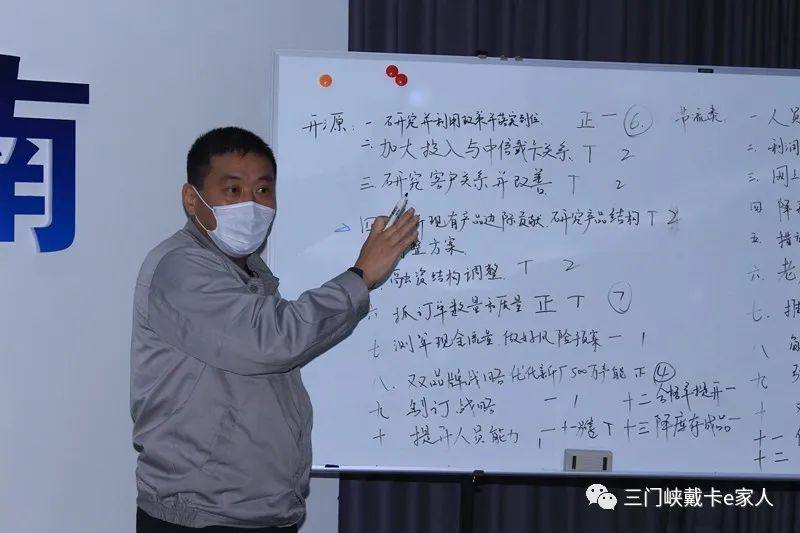 南
开源: 一 研究并利用政策并落实到位 正一 ⑥
二. 加大投入与中信戴卡关系. T 2
三. 研究客户关系并改善. T 2
四 现有产品边际贡献, 研究产品结构 T 2
整方案.
融资结构调整. T 2
六 抓订单数量和质量 正 T ⑦
七. 测算现金流量, 做好风险预案 一 1
八. 双品牌战略 优化新厂500万产能 正 ④
九 制订战略 一 1 十二 合格率提升一
十 提升人员能力 一 1 十一 T 十三 降库存成品一
一 人员
二. 利润
三. 网上
四 降
五. 措
六. 老
七.
八
九
十
十一
十二
三门峡戴卡e家人